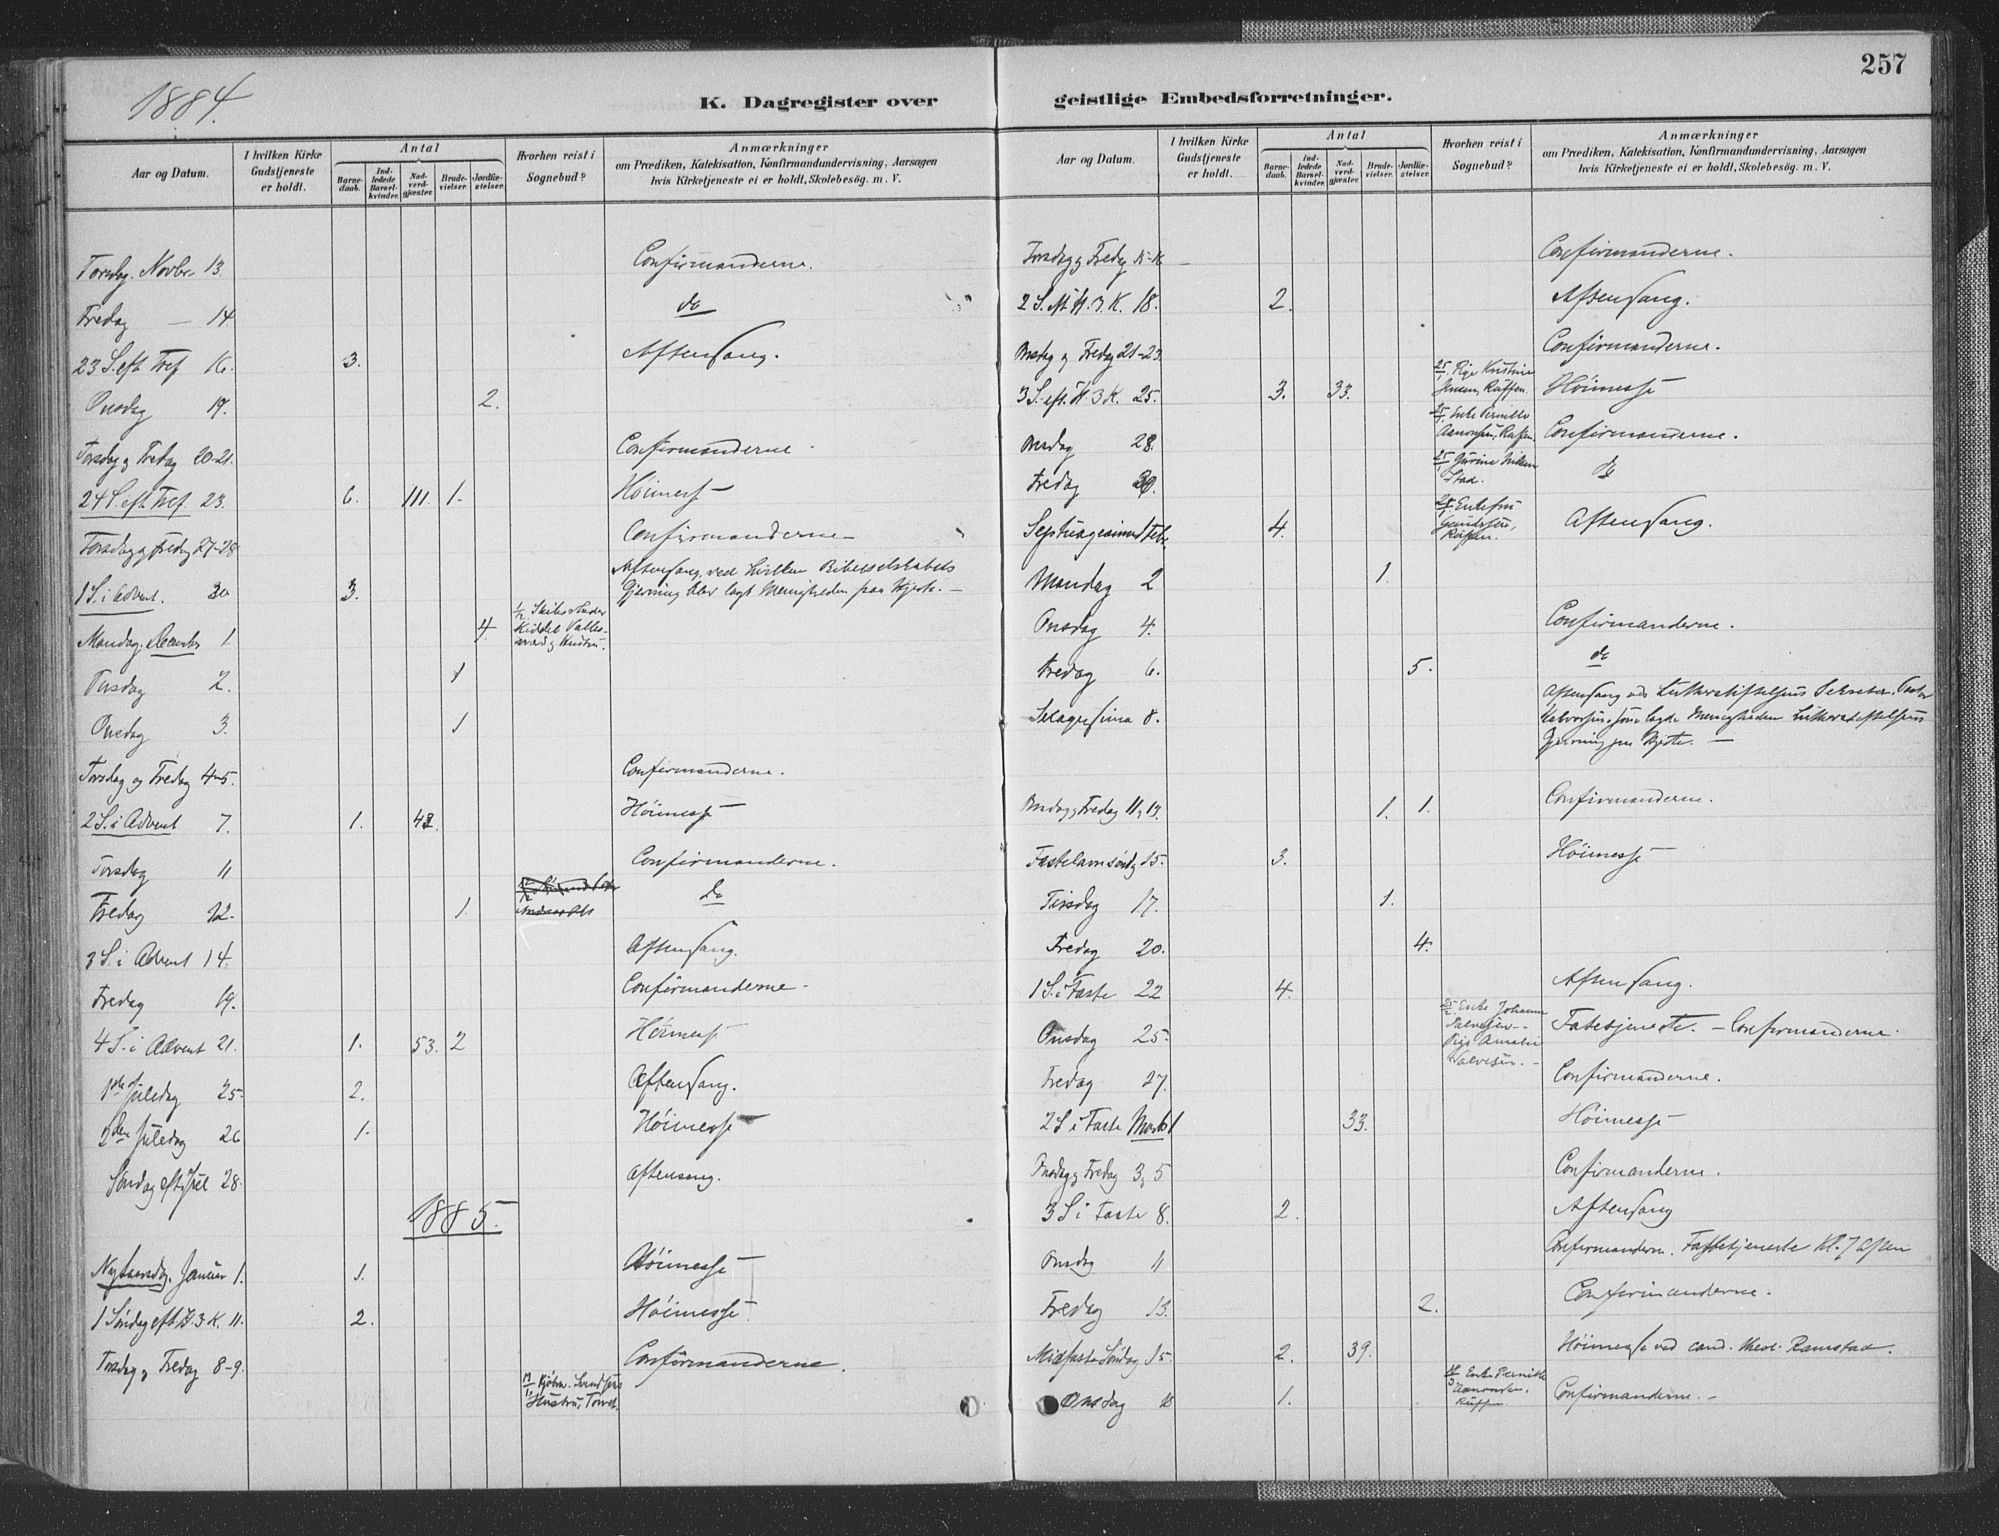 257
1884.
K. Dagregister over geistlige Embedsforretninger.
Aar og Datum.
I hvilken Kirke Gudstjeneste er holdt.
Antal
Barne-daab.
Ind-ledede Barsel-kvinder.
Nad-verd-gjester.
Brude-vielser.
Jordfæ-stelser.
Hvorhen reist i Sognebud?
Anmærkninger
om Prædiken, Katekisation, Konfirmandundervisning, Aarsagen
hvis Kirketjeneste ei er holdt, Skolebesøg. m. V.
Torsdag. Novbr 13. Confirmanderne.
Fredag — 14. do
23 S. eft Tref 16. 3. Aftensang.
Onsdag 19. 2.
Torsdag og Fredag 20-21. Confirmanderne
24 S. eft Tref. 23. 6. 111. 1. Høimesse
Torsdag og Fredag 27-28. Confirmanderne
1 S. i Advent. 30 3. Aftensang, ved hvilken Bibelselskabets
Gjerning blev lagt Menigheden paa Hjerte. —
Mandag. December 1 4. 1/12 Skibs
Tirsdag 2. 1
Onsdag 3. 1
Torsdag og Fredag 4-5. Confirmanderne.
2 S. i Advent 7. 1. 42. Høimesse
Torsdag 11 Confirmanderne.
Fredag 12. 1. do
3 S. i Advent 14. Aftensang.
Fredag 19. Confirmanderne
4 S. i Advent 21. 1. 53. 2 Høimesse
1ste Juledag 25. 2. Aftensang.
2den Juledag 26 1. Høimesse
Søndag eft Jul 28. Aftensang.
1885.
Nytaarsdag. Januar 1. 1. Høimesse
1 Søndag eft H. 3 K. 11. 2. Høimesse
Torsdag og Fredag 8-9. Confirmanderne.
Hustru,
Aar og Datum.
I hvilken Kirke Gudstjeneste er holdt.
Antal
Barne-daab.
Ind-ledede Barsel-kvinder.
Nad-verd-gjester.
Brude-vielser.
Jordfæ-stelser.
Hvorhen reist i Sognebud?
Anmærkninger
om Prædiken, Katekisation, Konfirmandundervisning, Aarsagen
hvis Kirketjeneste ei er holdt, Skolebesøg. m. V.
Torsdag og Fredag 15-16 Confirmanderne.
2 S. eft H. 3. K. 18. 2. Aftensang.
Onsdag og Fredag 21-23. Confirmanderne.
3 S. eft. H. 3 K. 25. 3. 33. 25/1 Pige Kristine Jensen, Høimesse
Onsdag 28. 25/1 Enke Pernille Aanonsen, Confirmanderne.
Fredag 30. do
Septuagesima 1 Febr. 4. Enkefru Aftensang.
Mandag 2 1.
Onsdag 4. Confirmanderne.
Fredag 6. 5. do
Sexagesima 8. Aftensang ved Lutherstiftelsens Sekretær, Pastor
Halvorsen, som lagde Menigheden Lutherstiftelsens
Gjerning paa Hjerte. —
Onsdag og Fredag 11, 13. 1. 1. Confirmanderne.
Fastelavnsøndag 15. 3. Høimesse
Tirsdag 17. 1.
Fredag 20. 4.
1 S. i Faste 22 4. Aftensang.
Onsdag 25. 25/2 Enke Johanne Salvesen Pige Amalie Salvesen. Fastetjeneste. — Confirmanderne.
Fredag 27. Confirmanderne.
2 S i Faste Marts 1 33. Høimesse
Onsdag og Fredag 3, 5 Confirmanderne.
3 S i Faste 8. 2. Aftensang
Onsdag 11 Confirmanderne. Fastetjeneste Kl. 7 Aften
Fredag 13. 2. Confirmanderne.
Midfaste Søndag 15. 2. 39. Høimesse ved cand. theol. Ramstad.
Onsdag 18 1. Enke Pernille Aanonsen, Confirmanderne. —